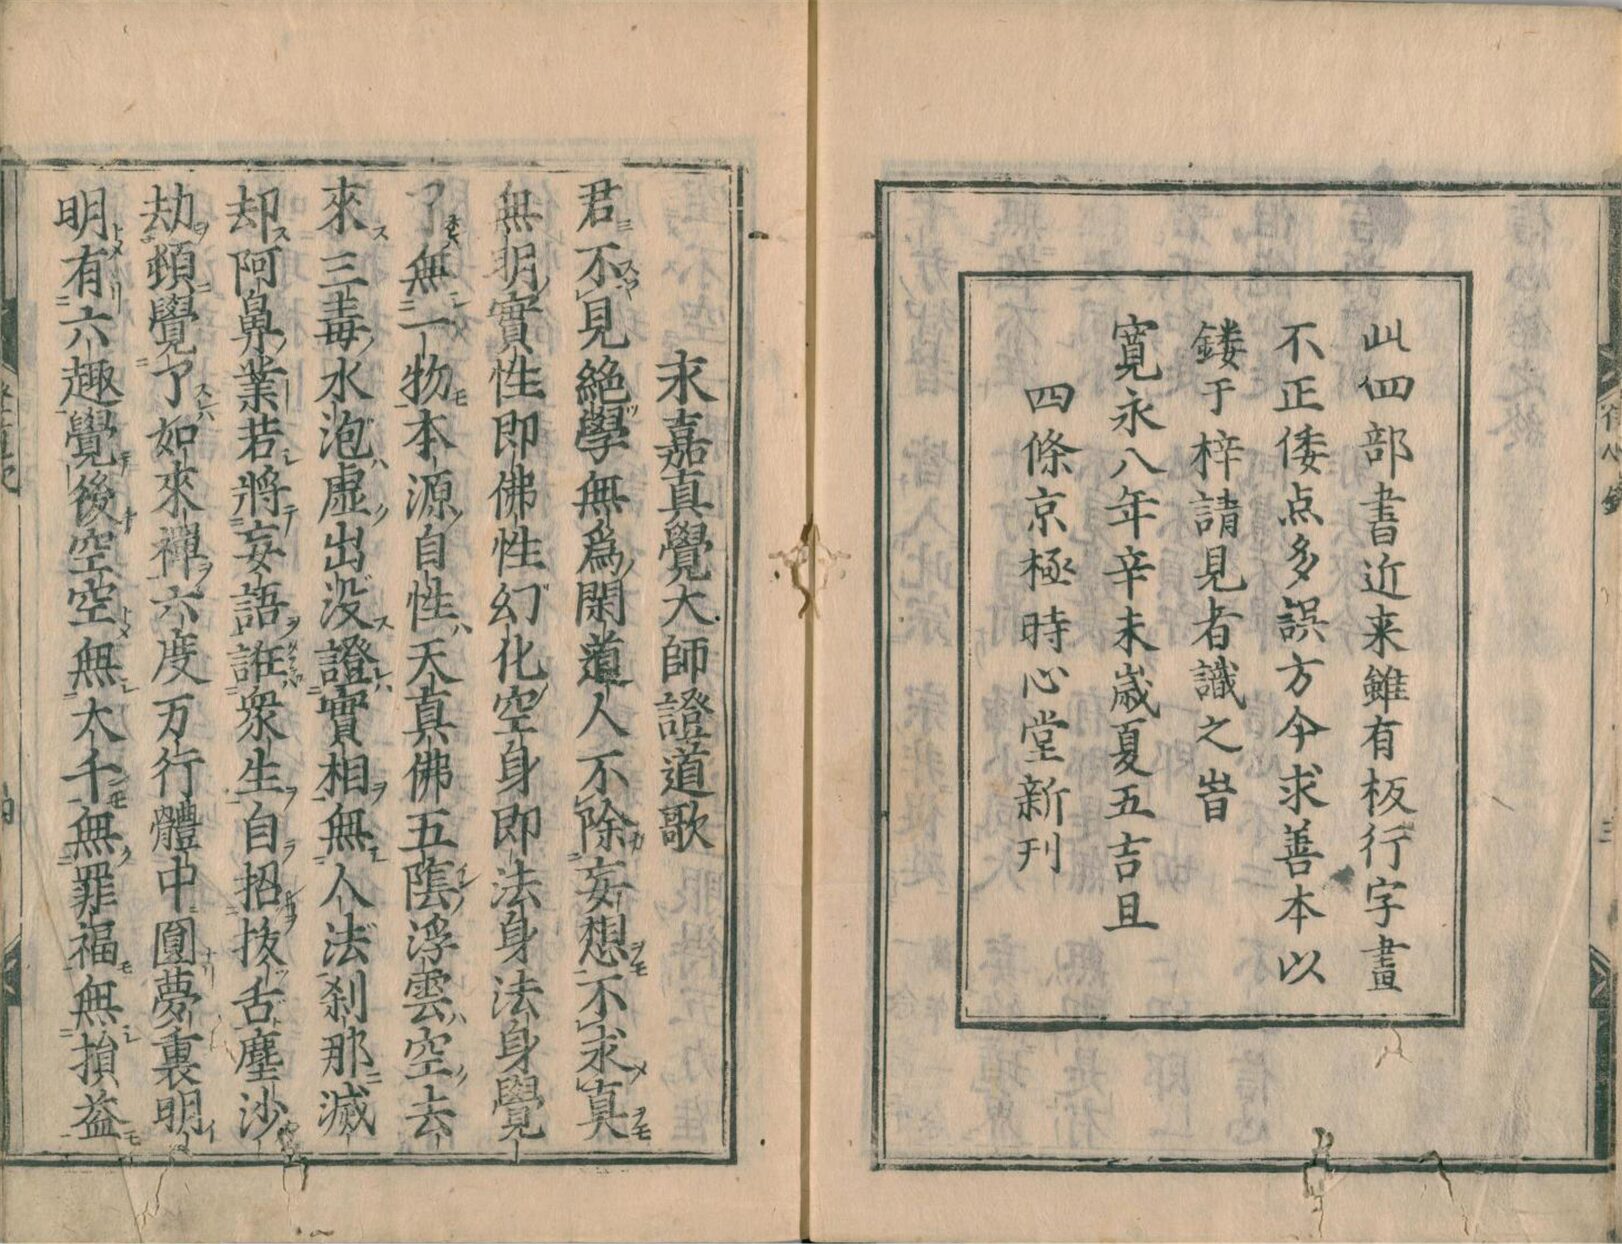 此四部書近来雖有板行字畫
不正倭点多誤方今求善本以
鏤于梓請見者識之旹
寛永八年辛未歳夏五吉旦
四條京極時心堂新刊
永嘉真覺大師證道歌
君不見絶學無爲閑道人不除妄想不求真
無明實性即佛性幻化空身即法身法身覺
了無一物本源自性天真佛五陰浮雲空去
來三毒水泡虚出没證實相無人法刹那滅
却阿鼻業若將妄語誑衆生自招拔舌塵沙
劫頓覺了如來禪六度万行體中圓夢裏明
明有六趣覺後空空無大千無罪福無損益